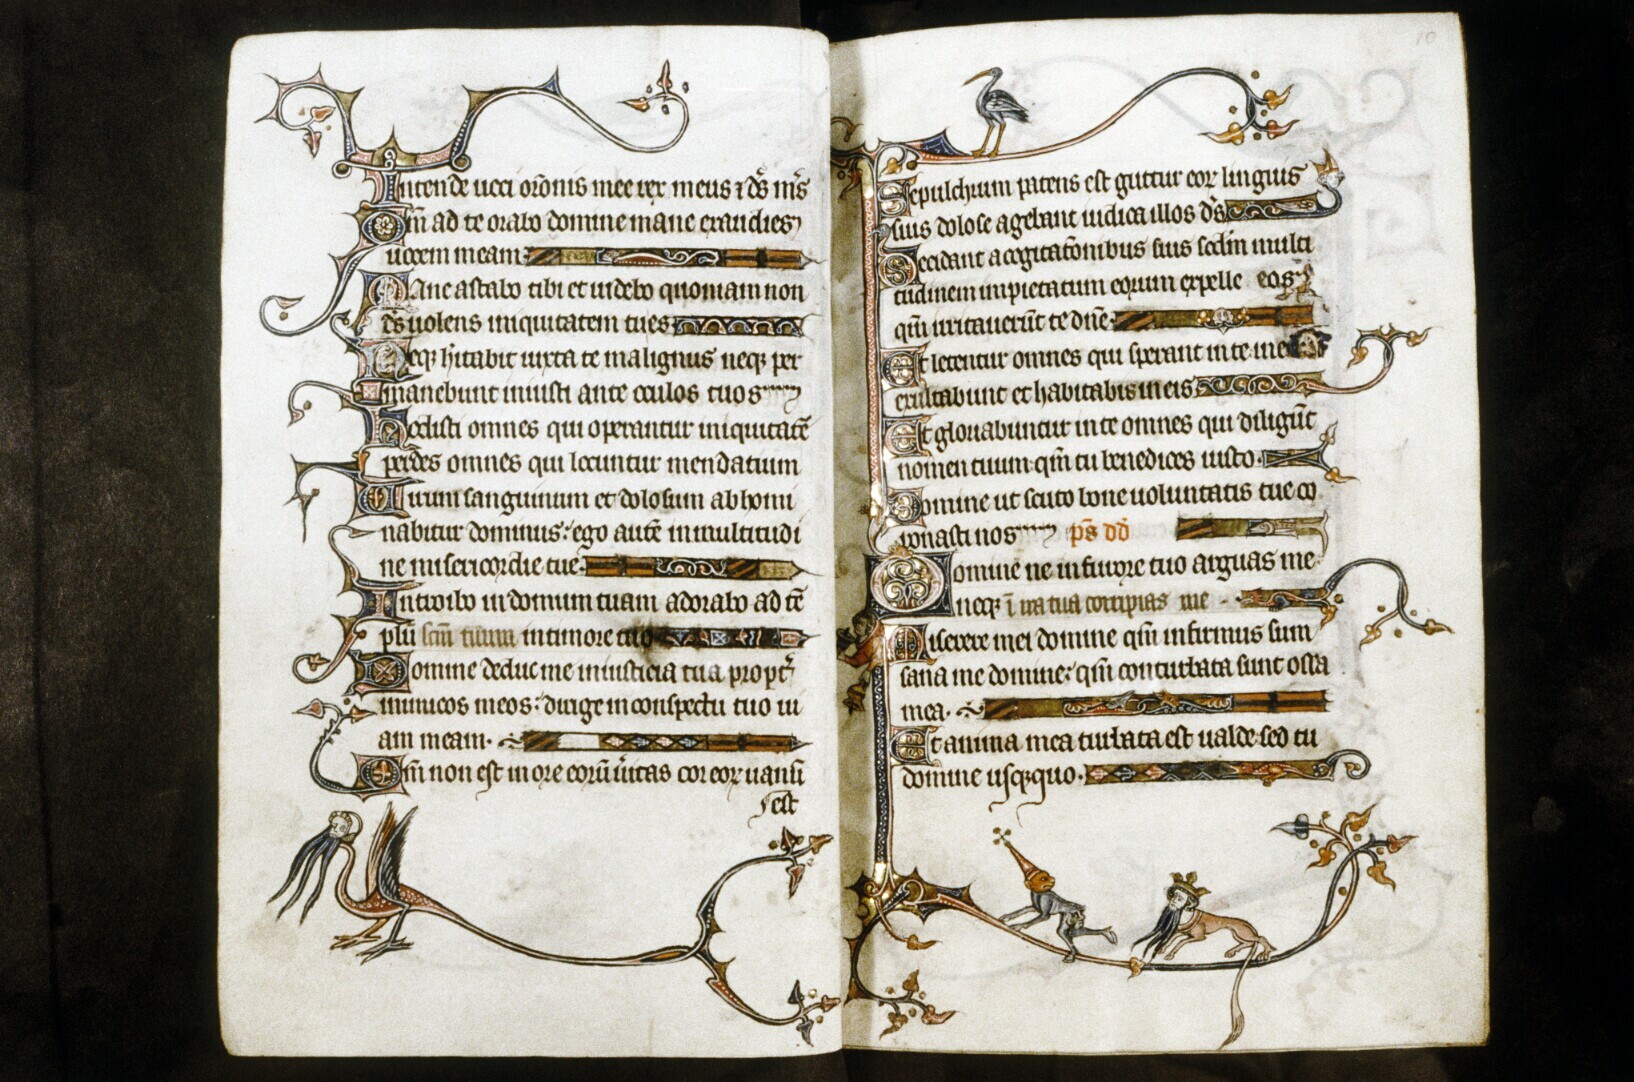 Intende uoci orōnis mee rex meus ⁊ dš mš
Qm̄ ad te orabo domine mane exaudies
uocem meam.
Mane astabo tibi et uidebo quoniam non
dš uolens iniquitatem tu es
Neqꝫ hītabit iuxta te malignus neqꝫ per
manebunt iniusti ante oculos tuos
Hodisti omnes qui operantur iniquitatē
perdes omnes qui locuntur mendatium
Uirum sanguinum et dolosum abhomi
nabitur dominus: ego autē in multitudi
ne misericordie tue.
Introibo in domum tuam adorabo ad tē
plū scm̄ tuum in timore tuo
Domine deduc me in iusticia tua propt̄
inimicos meos: dirige in conspectu tuo ui
am meam.
Qm̄ non est in ore eorū ūitas cor eoꝝ uanū
est
10
Sepulchrum patens est guttur eoꝝ linguis
suis dolose agebant iudica illos dš
Decidant a cogitatōnibus suis scdm̄ multi
tudinem impietatum eorum expelle eos
qm̄ irritauerūt te dn̄e
Et letentur omnes qui sperant in te in e
exultabunt et habitabis in eis
Et gloriabuntur in te omnes qui diligūt
nomen tuum qm̄ tu benedices iusto.
Domine ut scuto bone uoluntatis tue co
ronasti nos pš dd̄
Domine ne in furore tuo arguas me
neqꝫ ī ira tua corripias me
Miserere mei domine qm̄ infirmus sum
sana me domine: qm̄ conturbata sunt ossa
mea.
Et anima mea turbata est ualde sed tu
domine usqꝫquo.